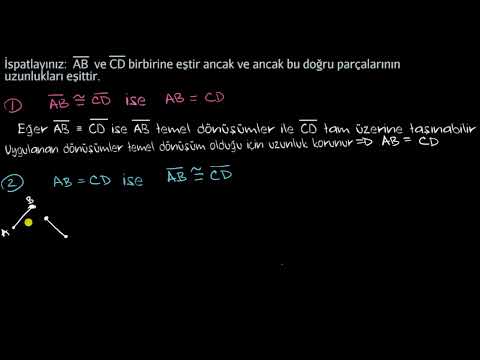 İspatlayınız: AB ve CD birbirine eştir ancak ve ancak bu doğru parçalarının
uzunlukları eşittir.
① AB ≅ CD ise AB = CD
Eğer AB ≅ CD ise AB temel dönüşümler ile CD tam üzerine taşınabilir
Uygulanan dönüşümler temel dönüşüm olduğu için uzunluk korunur ⇒ AB = CD
② AB = CD ise AB ≅ CD
B
A